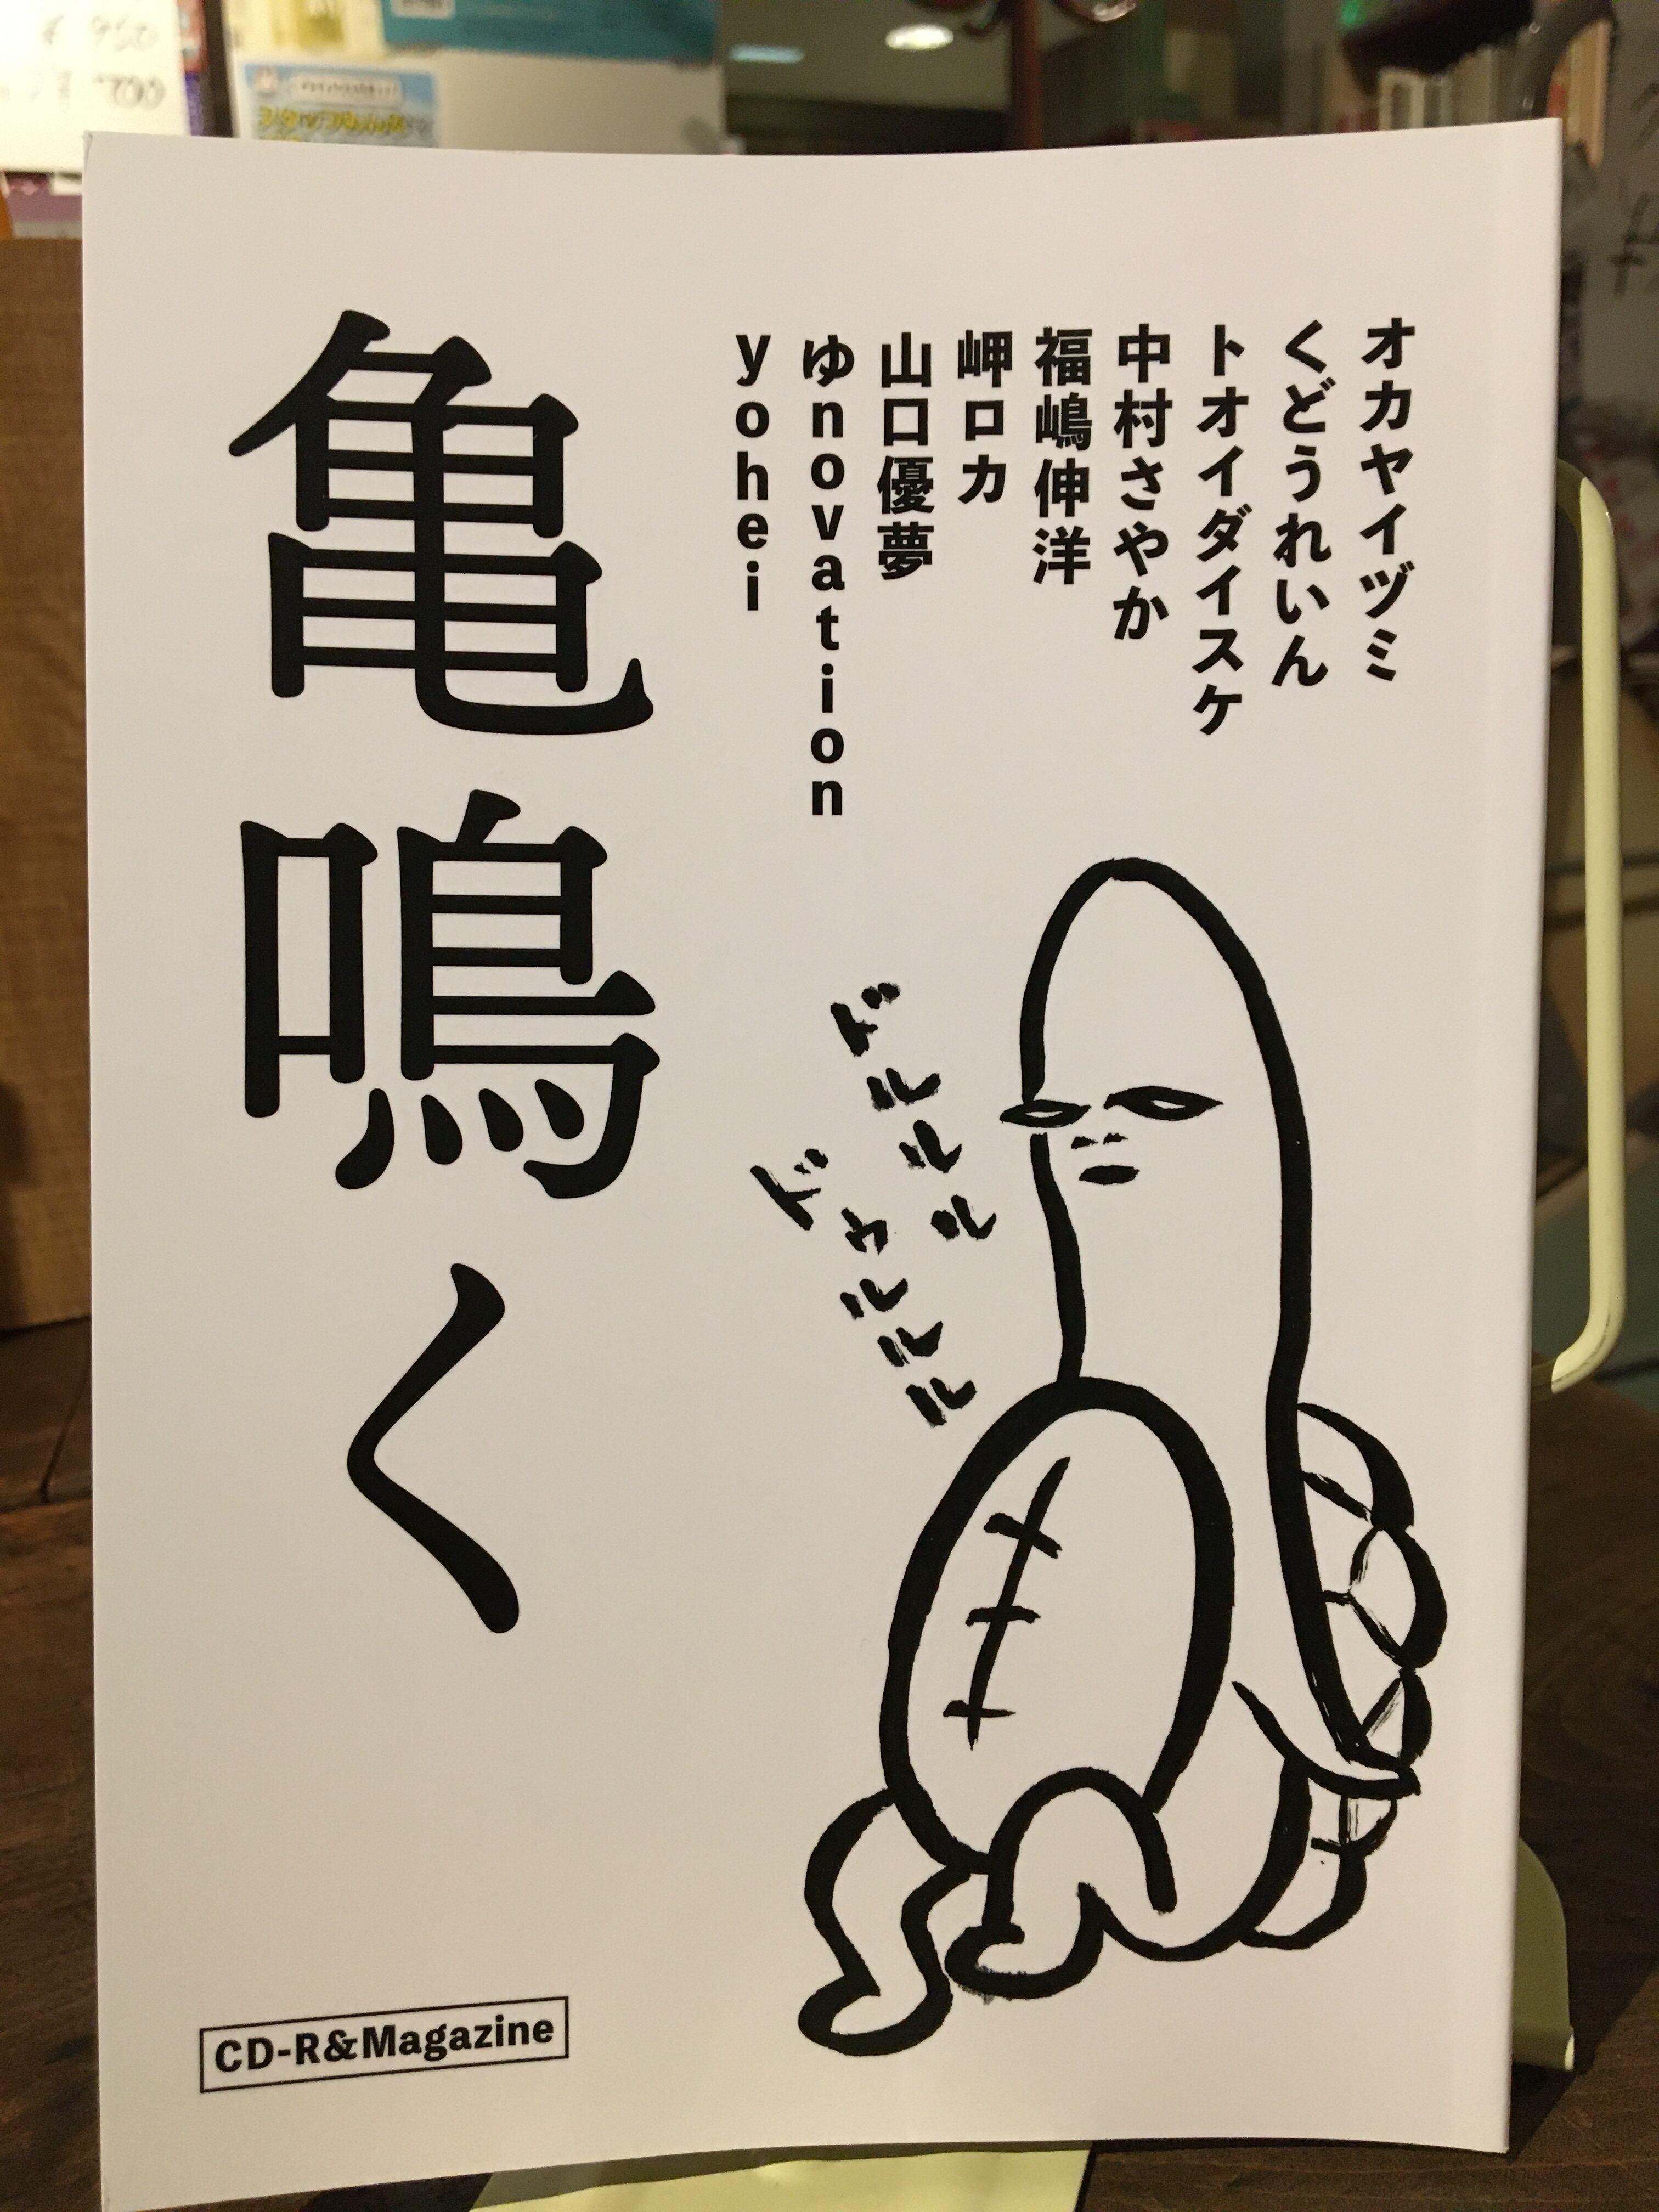 オカヤイヅミ
くどうれいん
トオイダイスケ
中村さやか
福嶋伸洋
岬ロカ
山口優夢
ゆnovation
yohei
亀鳴く
ドルルル
ドゥルルル
CD-R&Magazine